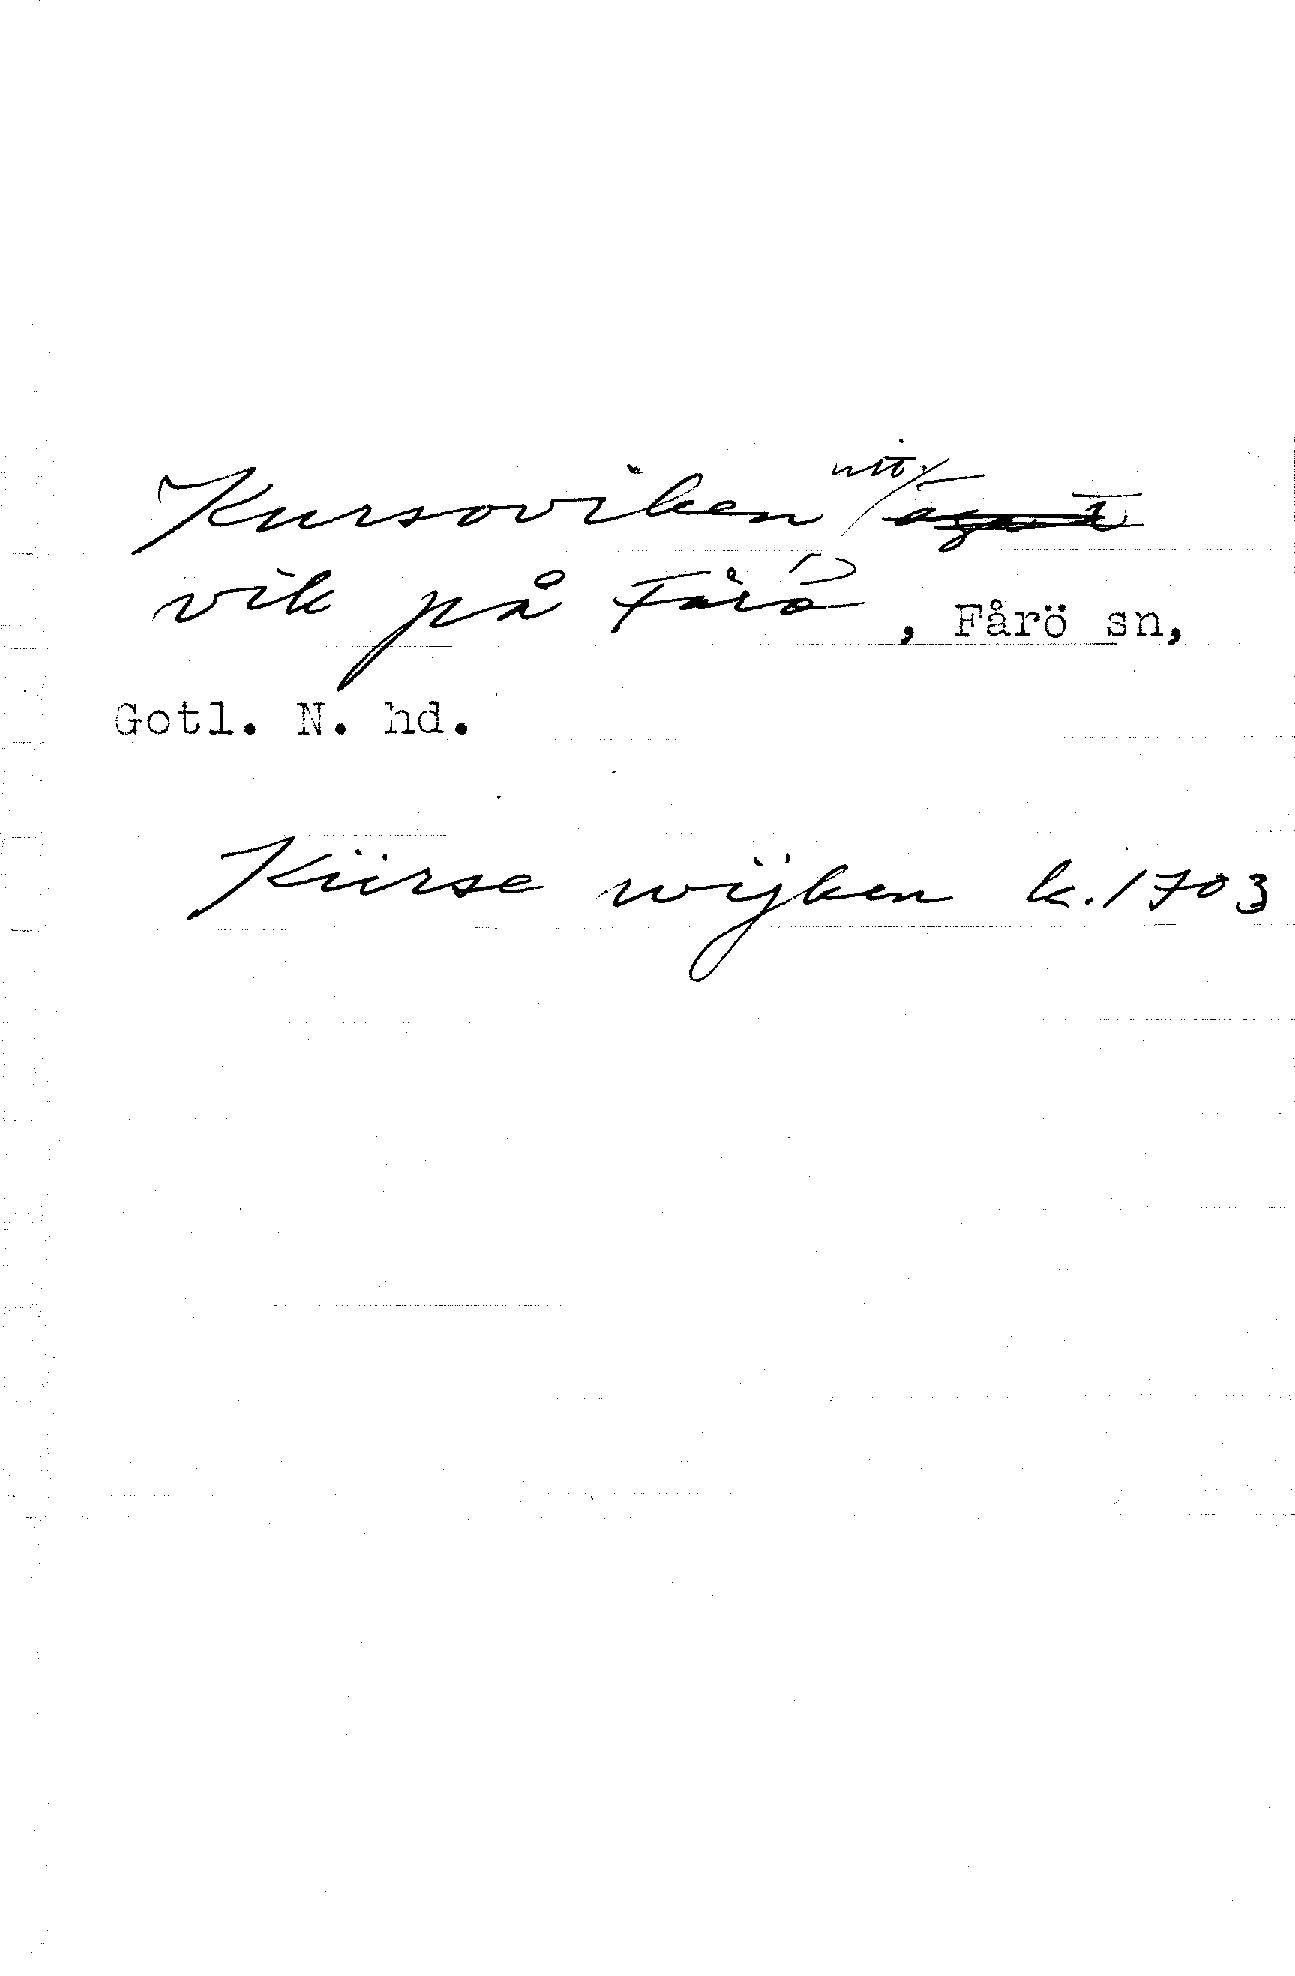 Kursoviken
vik på Fårö, Fårö sn,
Gotl. N. hd.
Kürse wijken k. 1703